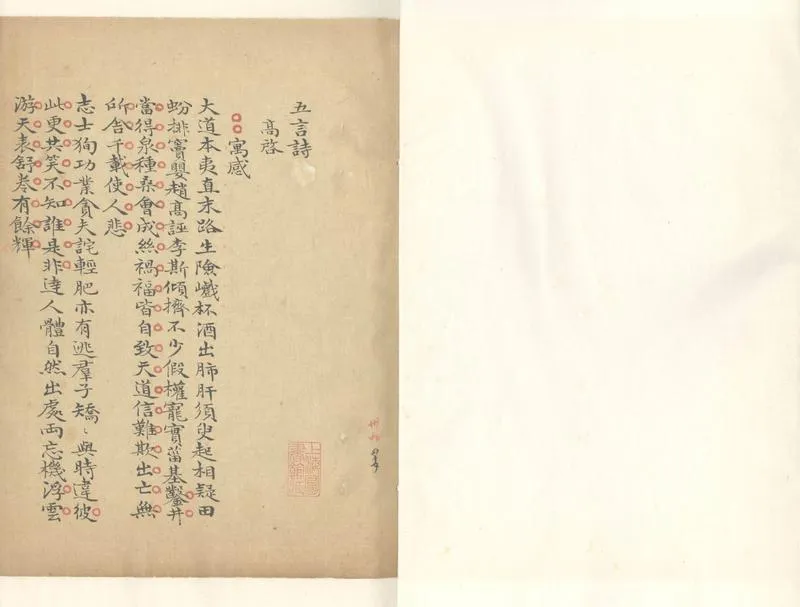 五言詩
高啓
寓感
大道本夷直末路生險巇杯酒出肺肝須臾起相疑田
蚡排竇嬰趙高誣李斯傾擠不少假權寵實菑基鑿井
當得泉種桑會成絲禍福皆自致天道信難欺出亡無
所舍千載使人悲
志士狥功業貪夫詫輕肥亦有逃羣子矯〻與時違彼
此更共笑不知誰是非達人體自然出處兩忘機浮雲
游天表舒卷有餘輝
上海圖
書館藏